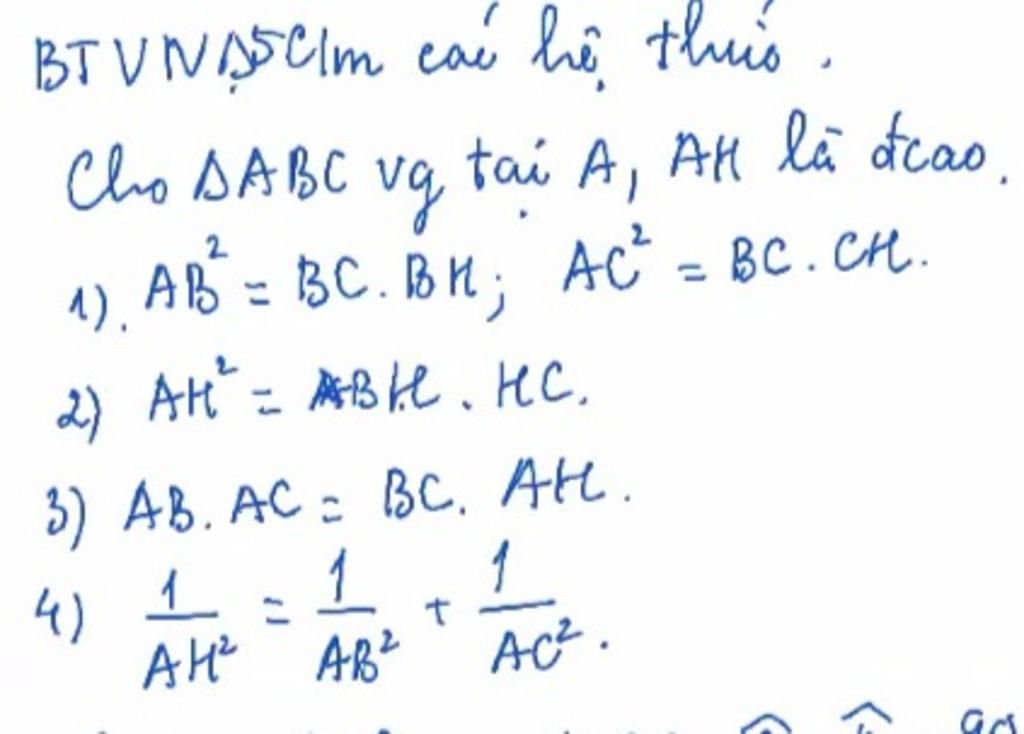 BTVN Δ5 C/m các hệ thức.
Cho ΔABC vg tại A, AH là đcao.
1). AB² = BC. BH; AC² = BC. CH.
2) AH² = BH. HC.
3) AB. AC = BC. AH.
4) 1/AH² = 1/AB² + 1/AC².